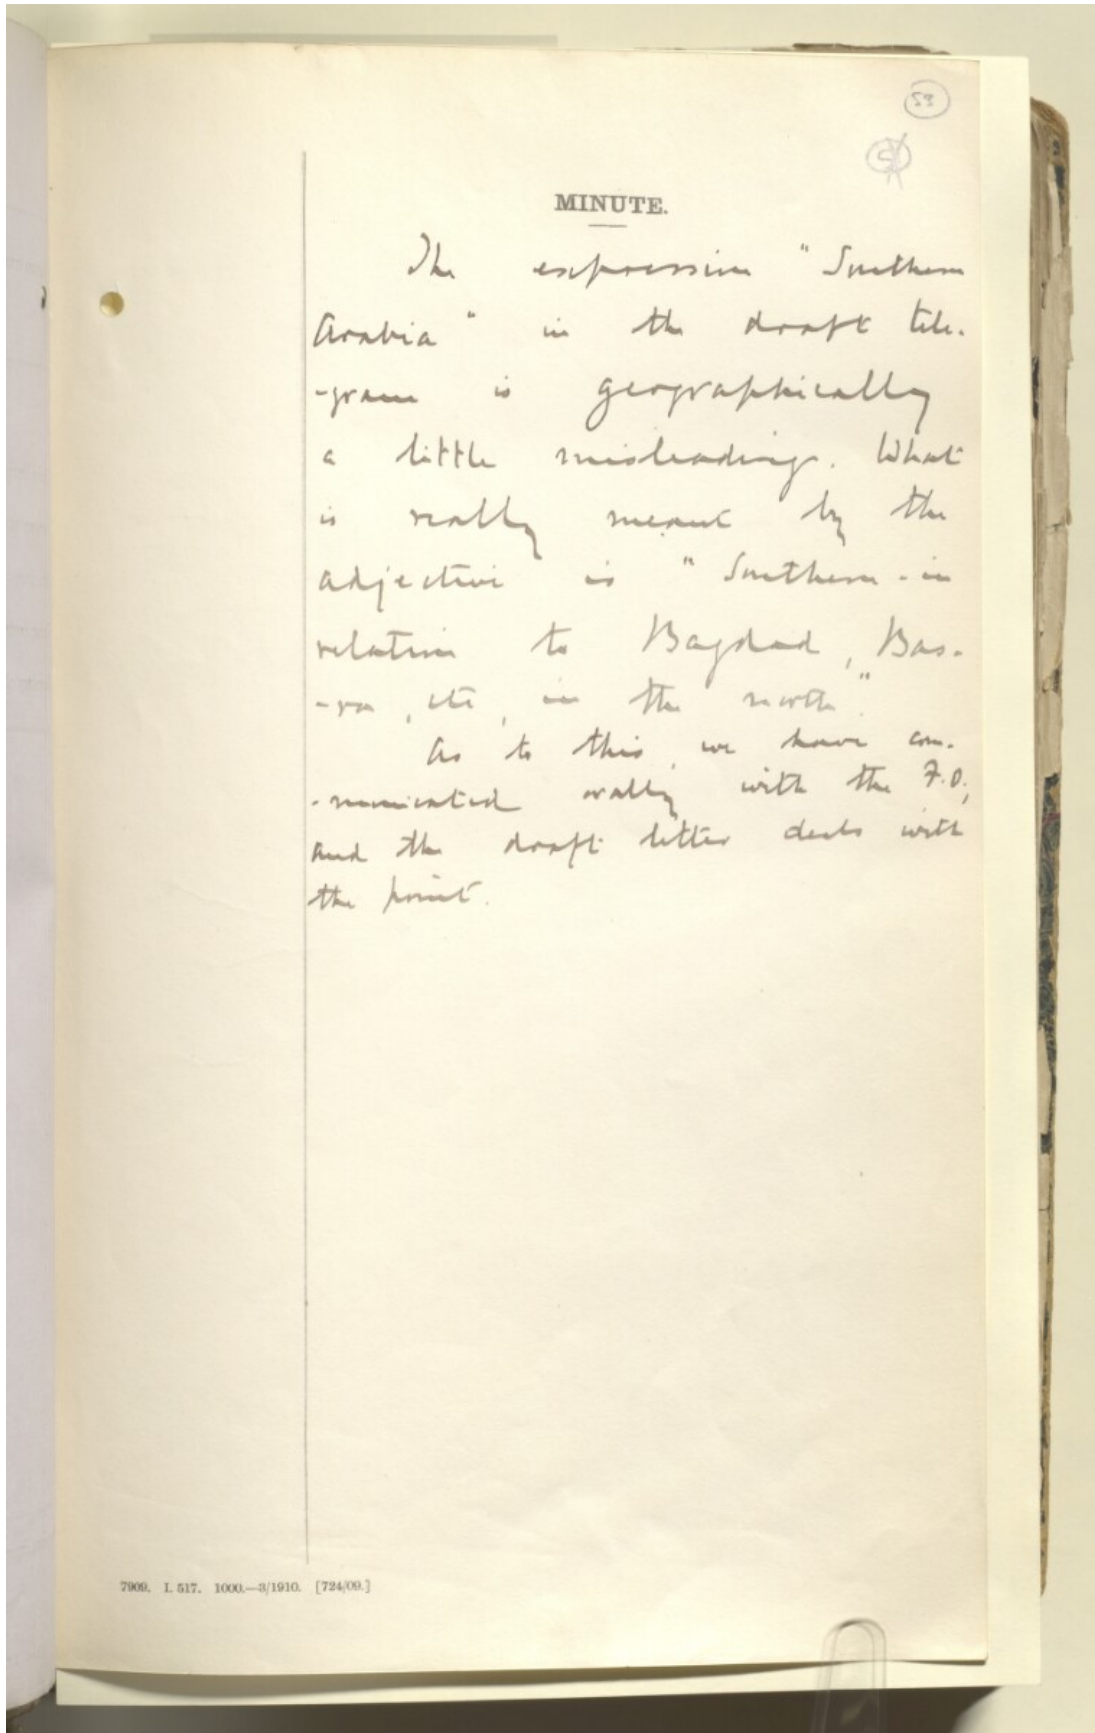 53
MINUTE.
The expression "Southern
Arabia" in the draft tele-
-gram is geographically
a little misleading. What
is really meant by the
adjective is "Southern - in
relation to Bagdad, Bas-
-ra, etc, in the north".
As to this, we have com-
-municated orally with the F.O.,
and the draft letter deals with
the point.
7909. I. 517. 1000.—3/1910. [724/09.]